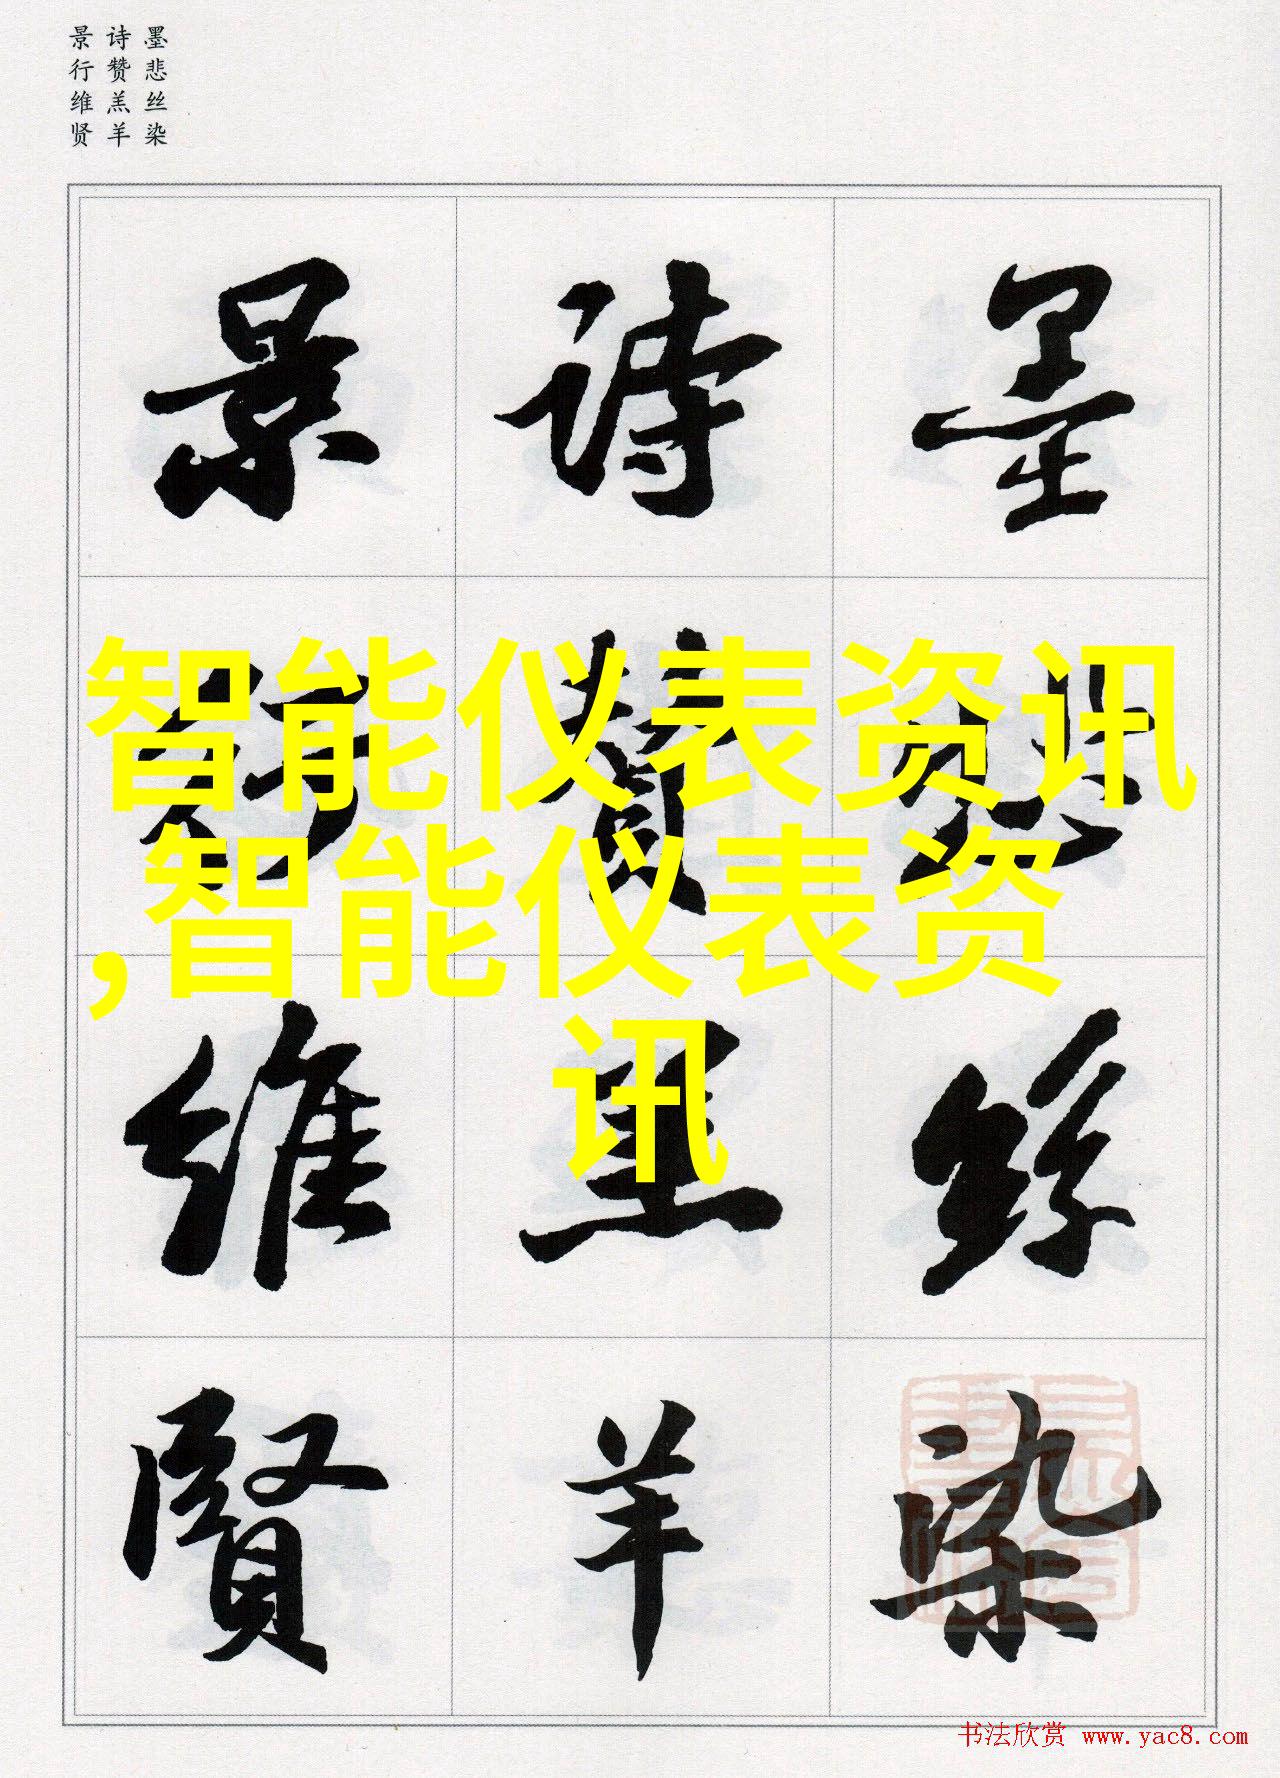 墨悲丝染
诗赞羔羊
景行维贤
墨悲絲染
詩讚羔羊
景行維賢
智能仪表资讯
,智能仪表资
讯
书法欣赏 www.yac8.com